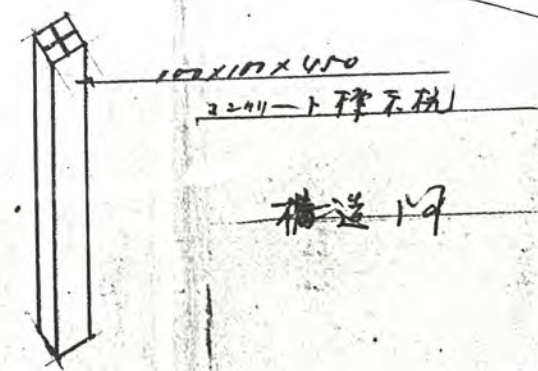 100×100×450
コンクリート標示杭
構造図